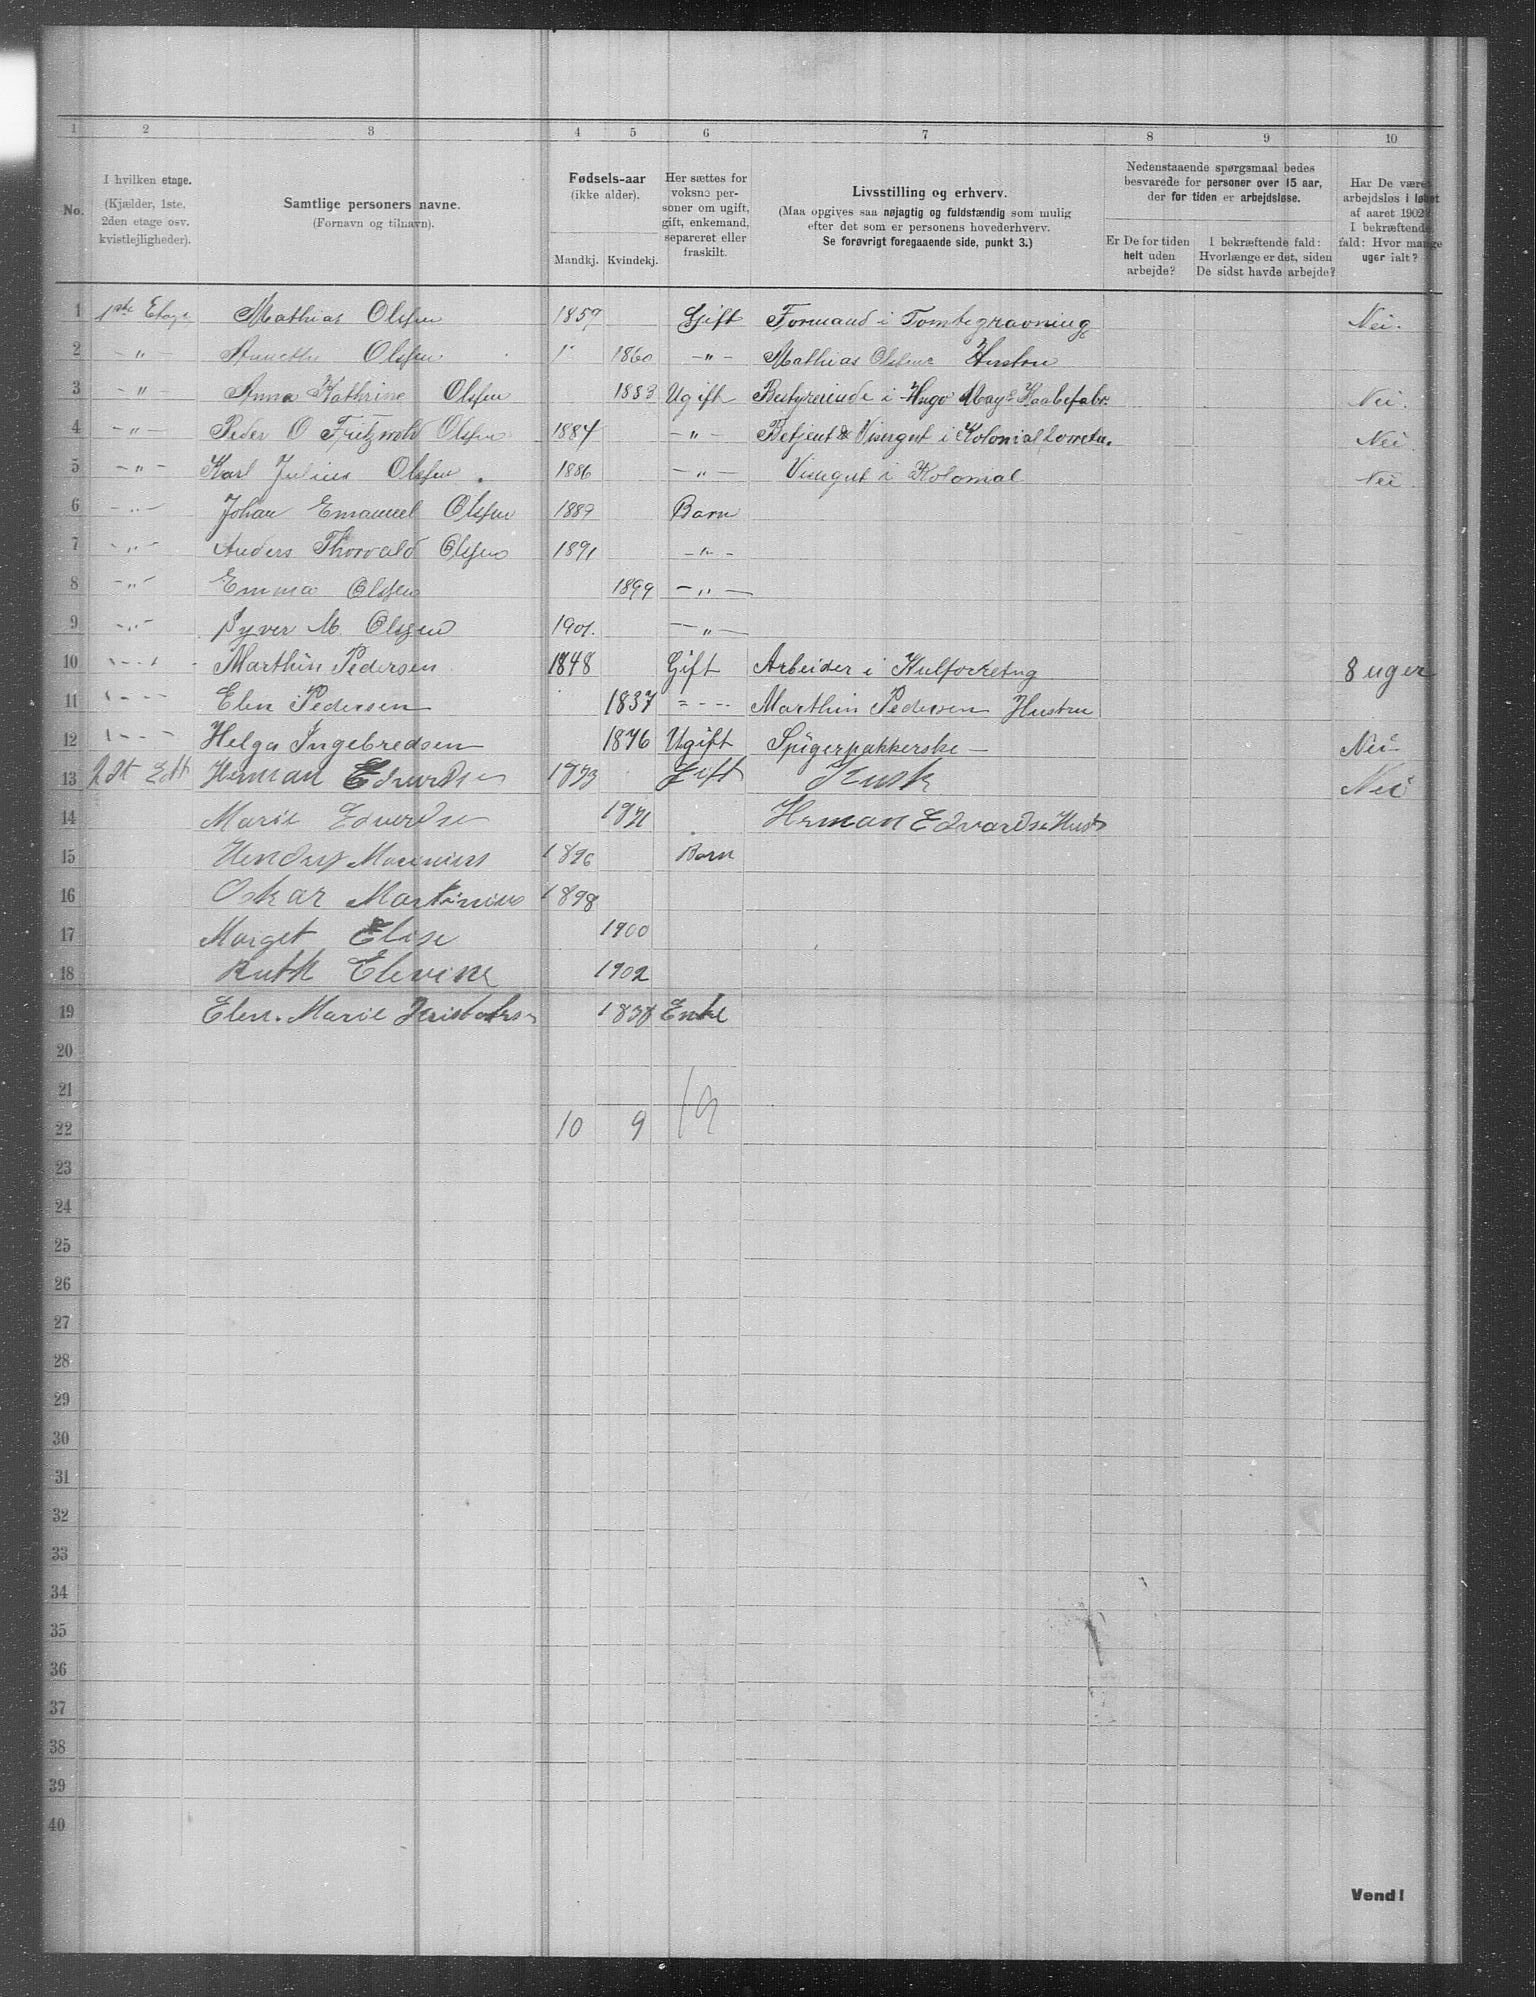 1 2 3 4 5 6 7 8 9 10
No.
I hvilken etage.
(Kjælder, 1ste,
2den etage osv.
kvistlejligheder).
Samtlige personers navne.
(Fornavn og tilnavn).
Fødsels-aar
(ikke alder).
Mandkj. Kvindekj.
Her sættes for
voksne per-
soner om ugift,
gift, enkemand,
separeret eller
fraskilt.
Livsstilling og erhverv.
(Maa opgives saa nøjagtig og fuldstændig som mulig
efter det som er personens hovederhverv.
Se forøvrigt foregaaende side, punkt 3.)
Nedenstaaende spørgsmaal bedes
besvarede for personer over 15 aar,
der for tiden er arbejdsløse.
Er De for tiden
helt uden
arbejde?
I bekræftende fald:
Hvorlænge er det, siden
De sidst havde arbejde?
Har De været
arbejdsløs i løbet
af aaret 1902?
I bekræftende
fald: Hvor mange
uger ialt?
1 1ste Etage Mathias Olsen 1857 Gift Formand i Tomtegravning Nei.
2 -"- Annette Olsen 1860 -"- Mathias Olsens Hustru
3 -"- Anna Kathrine Olsen 1883 Ugift Bestyrerinde i Hugo Mays Kaabefabr. Nei.
4 -"- Peder O Fritzvold Olsen 1884 -"- Betjent & Visergut i Kolonial Nei
5 -"- Karl Julius Olsen 1886 -"- Visergut i Kolonial Nei
6 -"- Johan Emanuel Olsen 1889 Barn
7 -"- Anders Thorvald Olsen 1891 -"-
8 -"- Emma Olsen 1899 -"-
9 -"- Syver M. Olsen 1901. -"-
10 -"- Marthin Pedersen 1848 Gift Arbeider i Kulforretng 8 uger
11 -"- Elen Pedersen 1837 -"- Marthin Pedersen Hustru
12 -"- Helga Ingebredsen 1876 Ugift Spigerpakkerske - Nei-
13 2dt Ett Herman Edvardsen 1873 Gift Kusk Nei
14 Marie Edvardsen 1871 Herman Edvardsen Hust
15 Marinius 1896 Barn
16 Oskar Martinius 1898
17 Marget Elise 1900
18 Ruth Elevine 1902
19 Elen. Marie 1838 Enke
20
21
22 10 9 19
23
24
25
26
27
28
29
30
31
32
33
34
35
36
37
38
39
40
Vend!